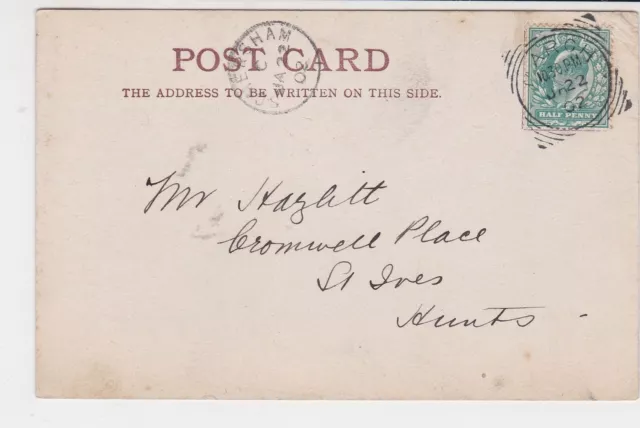 POST CARD
THE ADDRESS TO BE WRITTEN ON THIS SIDE.
ERSHAM
JA 22
02
MARCH
10.30 PM
JA 22
02
HALF PENNY
Mr Hazlitt
Cromwell Place
St Ives
Hunts